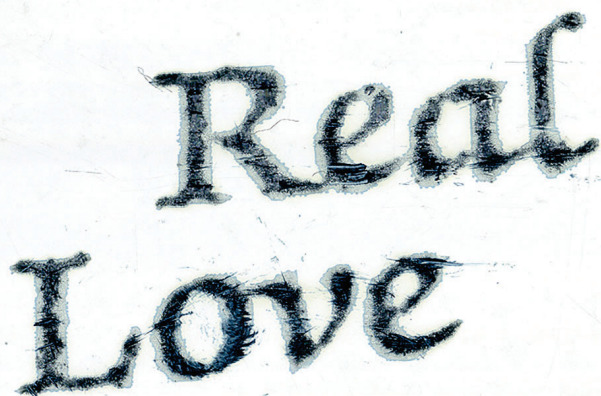 Real
Love